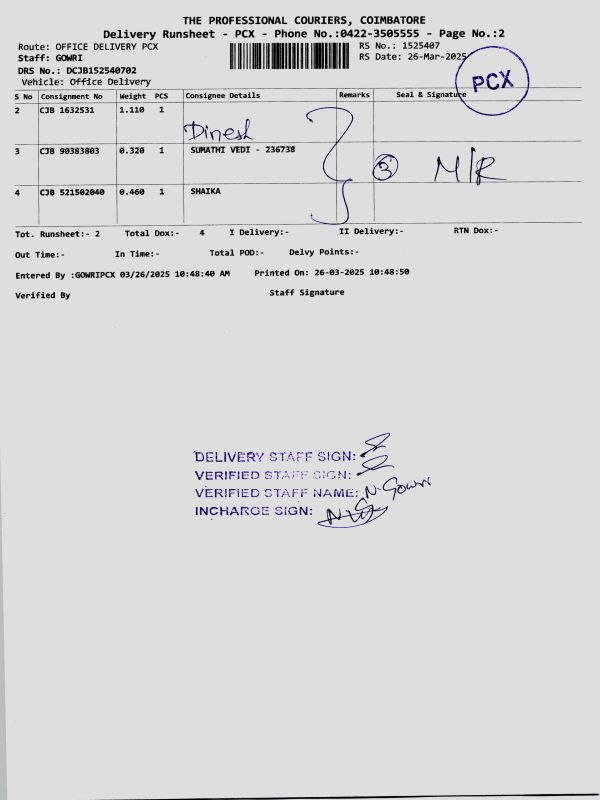 THE PROFESSIONAL COURIERS, COIMBATORE
Delivery Runsheet - PCX - Phone No.:0422-3505555 - Page No.:2
Route: OFFICE DELIVERY PCX RS No.: 1525407
Staff: GOWRI RS Date: 26-Mar-2025
DRS No.: DCJB152540702
Vehicle: Office Delivery
PCX
S No Consignment No Weight PCS Consignee Details Remarks Seal & Signature
2 CJB 1632531 1.110 1
Dinesh
3 CJB 90383803 0.320 1 SUMATHI VEDI - 236738
3 M/R
4 CJB 521502040 0.460 1 SHAIKA
Tot. Runsheet:- 2 Total Dox:- 4 I Delivery:- II Delivery:- RTN Dox:-
Out Time:- In Time:- Total POD:- Delvy Points:-
Entered By :GOWRIPCX 03/26/2025 10:48:40 AM Printed On: 26-03-2025 10:48:50
Verified By Staff Signature
DELIVERY STAFF SIGN:
VERIFIED STAFF SIGN:
VERIFIED STAFF NAME: N. Gowri
INCHARGE SIGN: